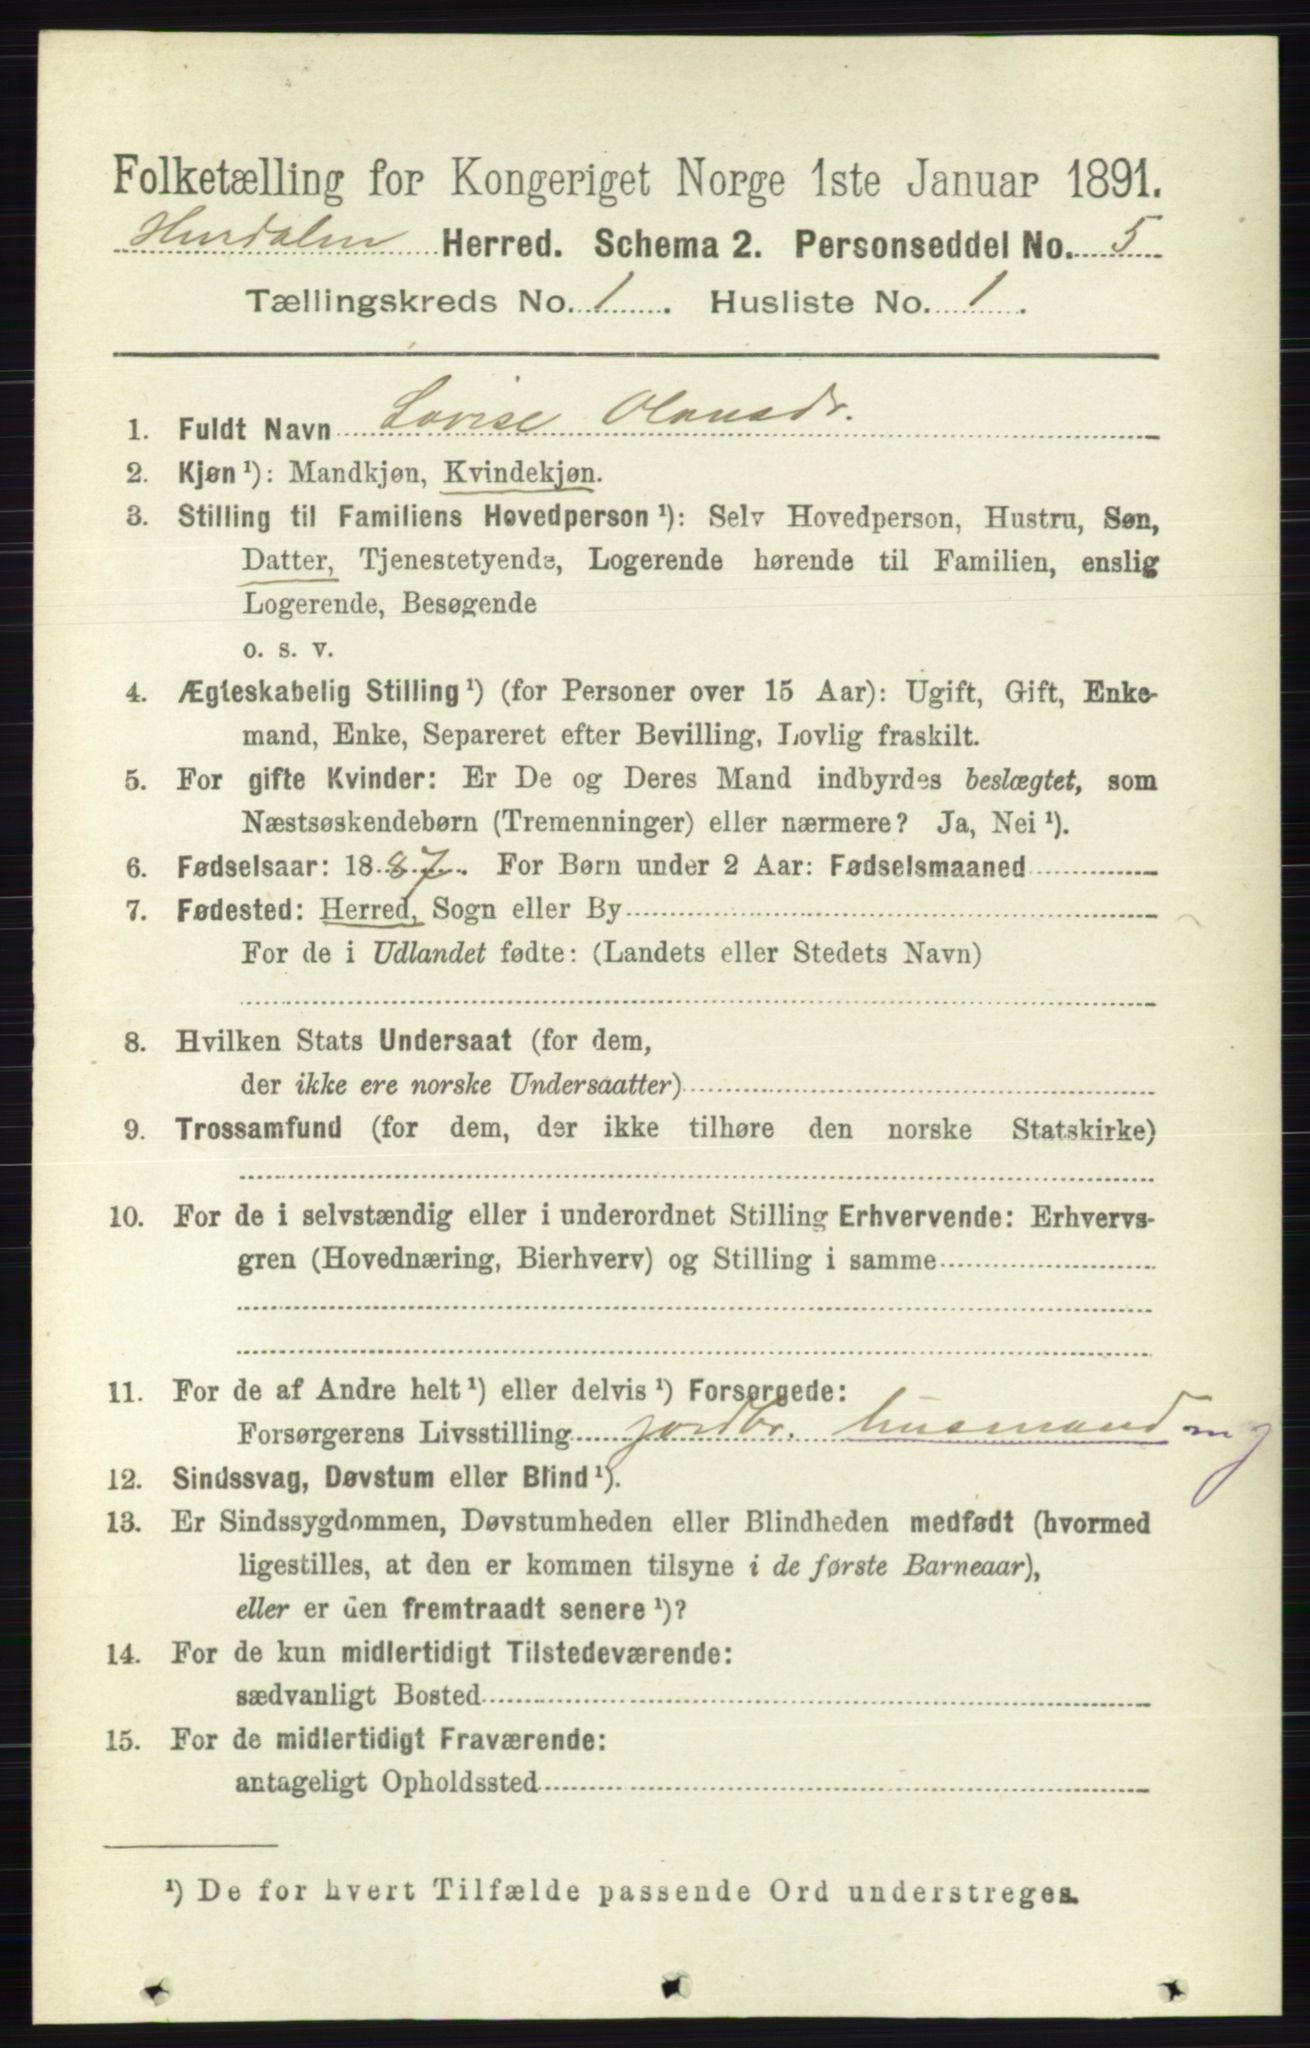 Folketælling for Kongeriget Norge 1ste Januar 1891.
Hurdalen Herred. Schema 2. Personseddel No. 5
Tællingskreds No. 1. Husliste No. 1.
1. Fuldt Navn Lovise Olausdr.
2. Kjøn ¹): Mandkjøn, Kvindekjøn.
3. Stilling til Familiens Hovedperson ¹): Selv Hovedperson, Hustru, Søn,
Datter, Tjenestetyende, Logerende hørende til Familien, enslig
Logerende, Besøgende
o. s. v.
4. Ægteskabelig Stilling ¹) (for Personer over 15 Aar): Ugift, Gift, Enke-
mand, Enke, Separeret efter Bevilling, Lovlig fraskilt.
5. For gifte Kvinder: Er De og Deres Mand indbyrdes beslægtet, som
Næstsøskendebørn (Tremenninger) eller nærmere? Ja, Nei ¹).
6. Fødselsaar: 1887. For Børn under 2 Aar: Fødselsmaaned
7. Fødested: Herred, Sogn eller By
For de i Udlandet fødte: (Landets eller Stedets Navn)
8. Hvilken Stats Undersaat (for dem,
der ikke ere norske Undersaatter)
9. Trossamfund (for dem, der ikke tilhøre den norske Statskirke)
10. For de i selvstændig eller i underordnet Stilling Erhvervende: Erhvervs-
gren (Hovednæring, Bierhverv) og Stilling i samme
11. For de af Andre helt ¹) eller delvis ¹) Forsørgede:
Forsørgerens Livsstilling jordbr. husmand m j
12. Sindssvag, Døvstum eller Blind ¹).
13. Er Sindssygdommen, Døvstumheden eller Blindheden medfødt (hvormed
ligestilles, at den er kommen tilsyne i de første Barneaar),
eller er den fremtraadt senere ¹)?
14. For de kun midlertidigt Tilstedeværende:
sædvanligt Bosted
15. For de midlertidigt Fraværende:
antageligt Opholdssted
¹) De for hvert Tilfælde passende Ord understreges.